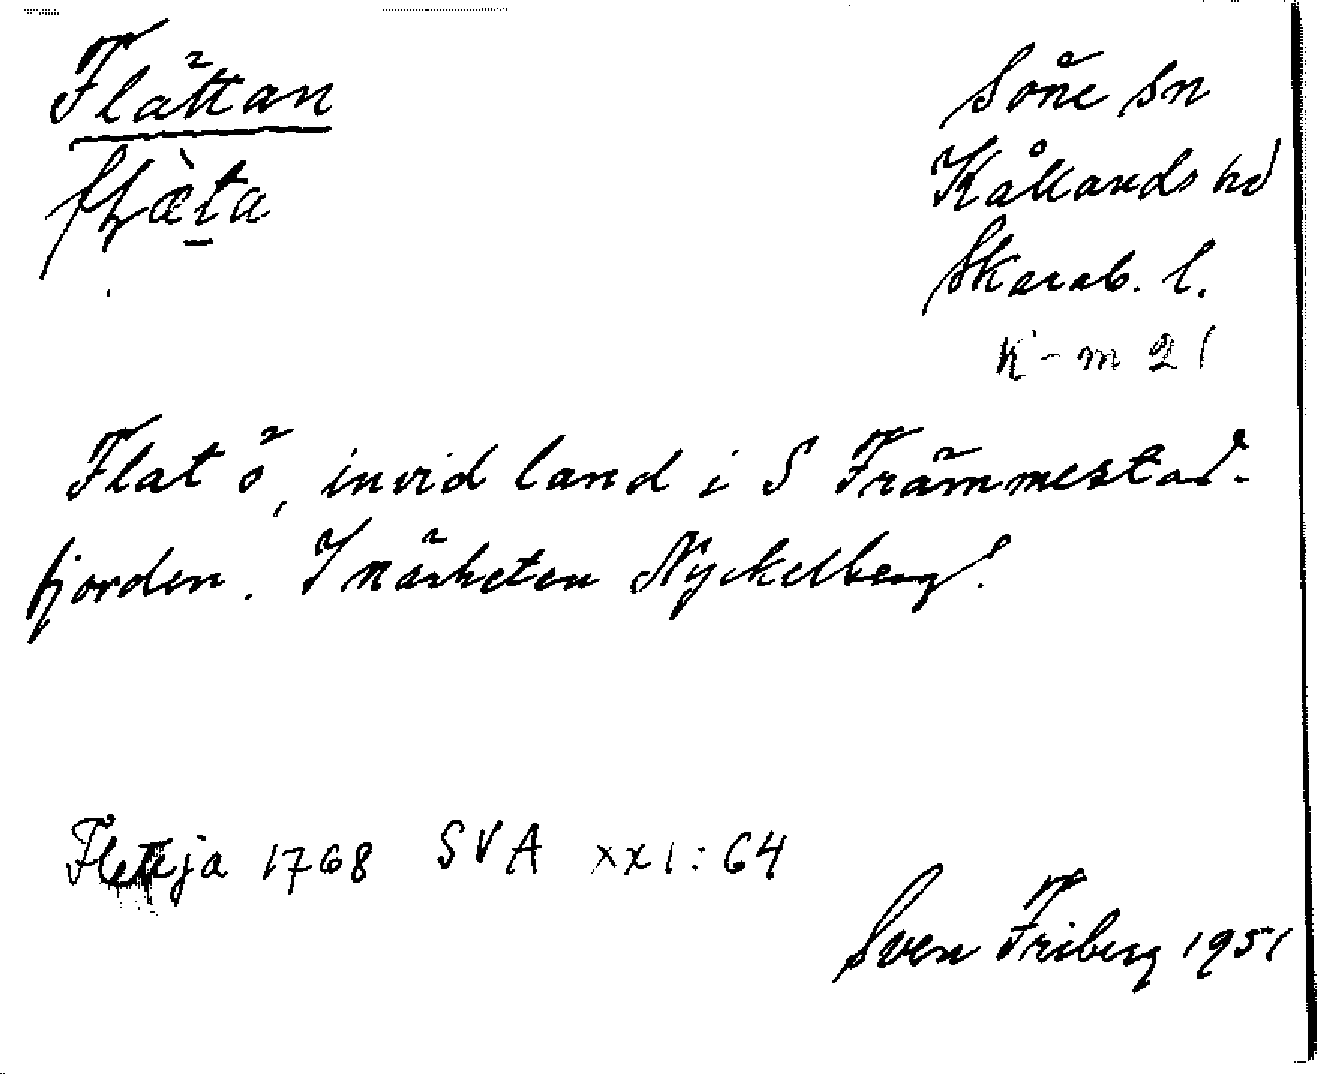 Flättan
Söne sn
flæ̀ta
Kållands hd
Skarab. l.
K-m 21
Flat ö, invid land i S Främmestad-
fjorden. I närheten Nyckelberg!
Flettja 1768 SVA XXI:64
Sven Friberg 1951